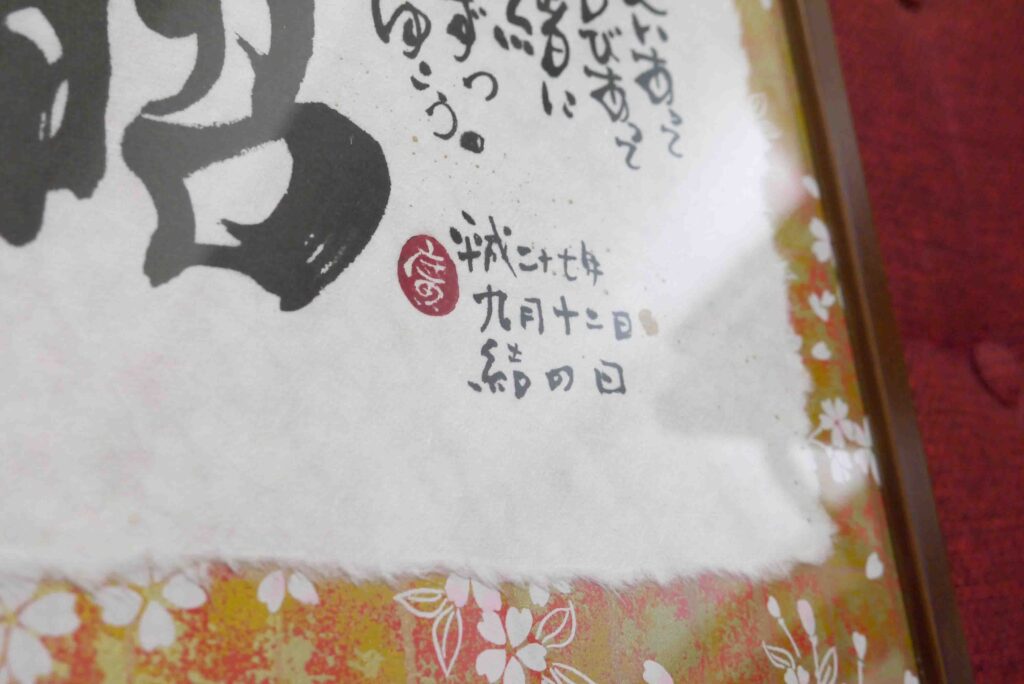 いあって
びあって
緒に
ずつ
ゆこう。
平成二十七年
九月十二日
結の日